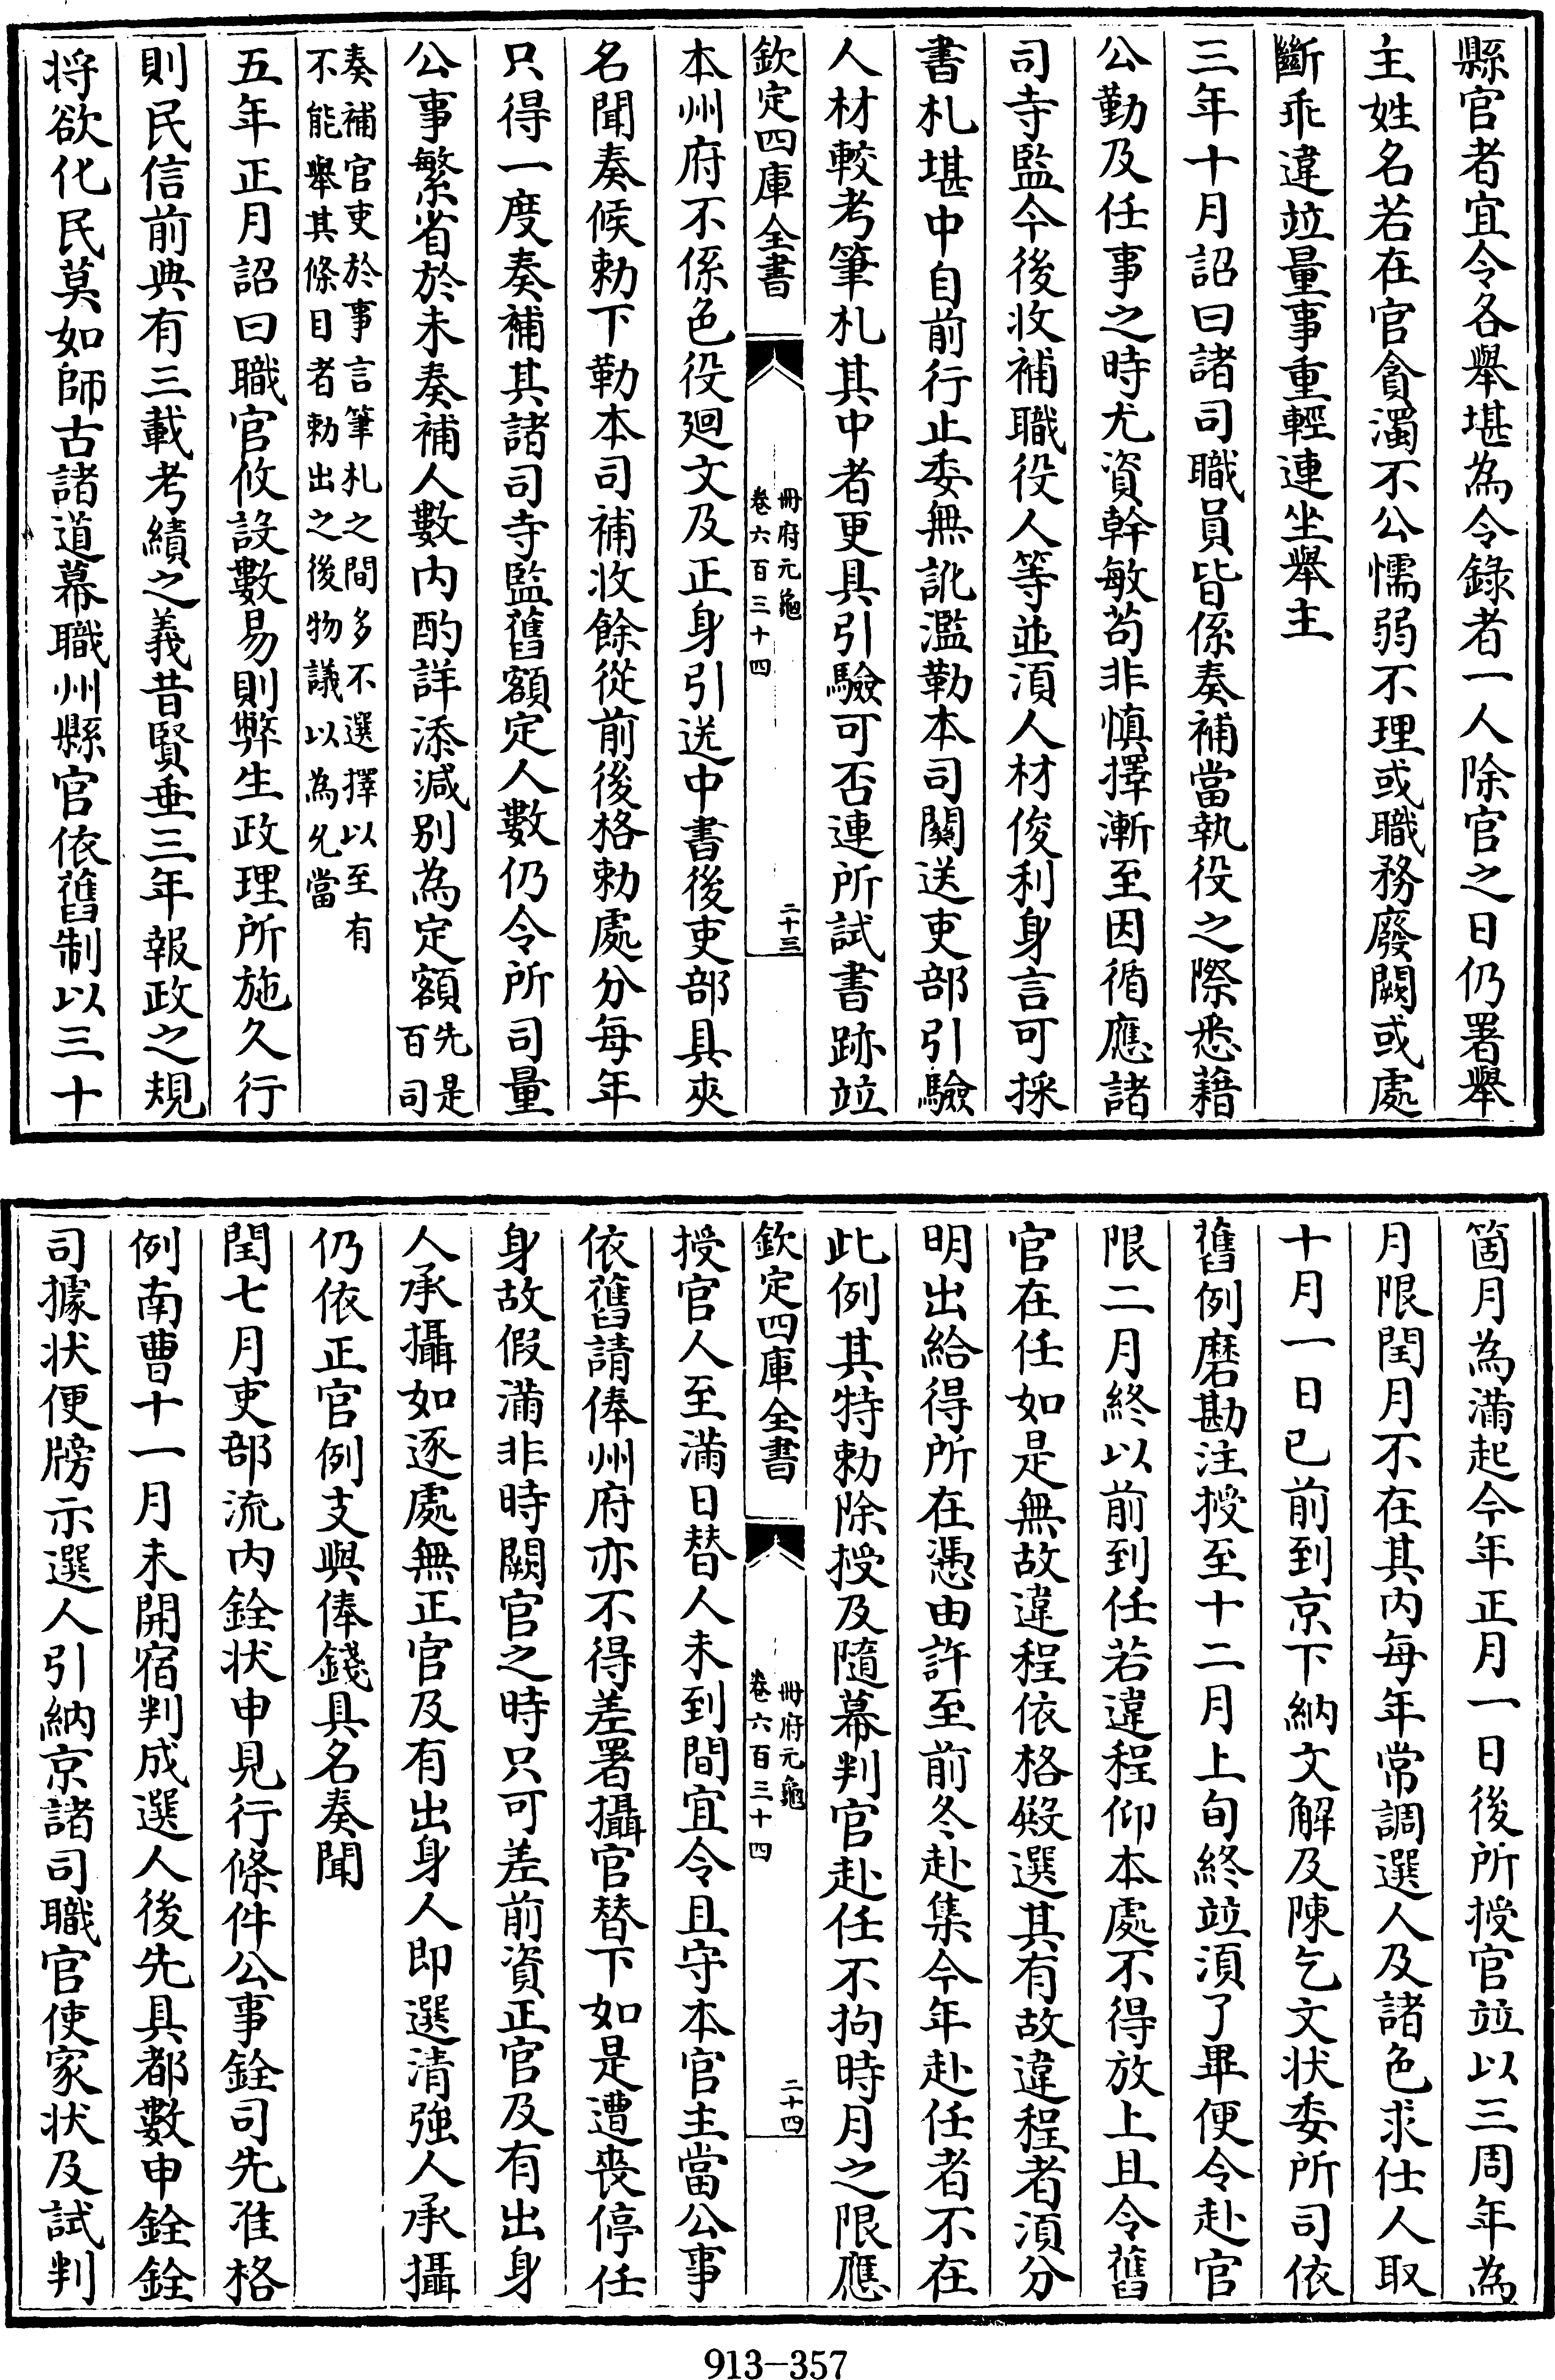 縣官者宜令各舉堪為令錄者一人除官之日仍署舉
主姓名若在官貪濁不公懦弱不理或職務廢闕或處
斷乖違竝量事重輕連坐舉主
三年十月詔曰諸司職員皆係奏補當執役之際悉藉
公勤及任事之時尤資幹敏茍非慎擇漸至因循應諸
司寺監今後收補職役人等並須人材俊利身言可採
書札堪中自前行止委無訛濫勒本司關送吏部引驗
人材較考筆札其中者更具引驗可否連所試書跡竝
欽定四庫全書
冊府元龜
卷六百三十四
二十三
本州府不係色役廻文及正身引送中書後吏部具夾
名聞奏候勅下勒本司補收餘從前後格勅處分每年
只得一度奏補其諸司寺監舊額定人數仍令所司量
公事繁省於未奏補人數內酌詳添減別為定額先是
百司
奏補官吏於事言筆札之間多不選擇以至有
不能舉其條目者勅出之後物議以為允當
五年正月詔曰職官攸設數易則弊生政理所施久行
則民信前典有三載考績之義昔賢垂三年報政之規
將欲化民莫如師古諸道幕職州縣官依舊制以三十
箇月為滿起今年正月一日後所授官竝以三周年為
月限閏月不在其內每年常調選人及諸色求仕人取
十月一日已前到京下納文解及陳乞文狀委所司依
舊例磨勘注授至十二月上旬終竝須了畢便令赴官
限二月終以前到任若違程仰本處不得放上且令舊
官在任如是無故違程依格殿選其有故違程者須分
明出給得所在憑由許至前冬赴集今年赴任者不在
此例其特勅除授及隨幕判官赴任不拘時月之限應
欽定四庫全書
冊府元龜
卷六百三十四
二十四
授官人至滿日替人未到間宜令且守本官主當公事
依舊請俸州府亦不得差署攝官替下如是遭喪停任
身故假滿非時闕官之時只可差前資正官及有出身
人承攝如逐處無正官及有出身人即選清強人承攝
仍依正官例支與俸錢具名奏聞
閏七月吏部流內銓狀申見行條件公事銓司先准格
例南曹十一月未開宿判成選人後先具都數申銓銓
司據狀便牓示選人引納京諸司職官使家狀及試判
913-357